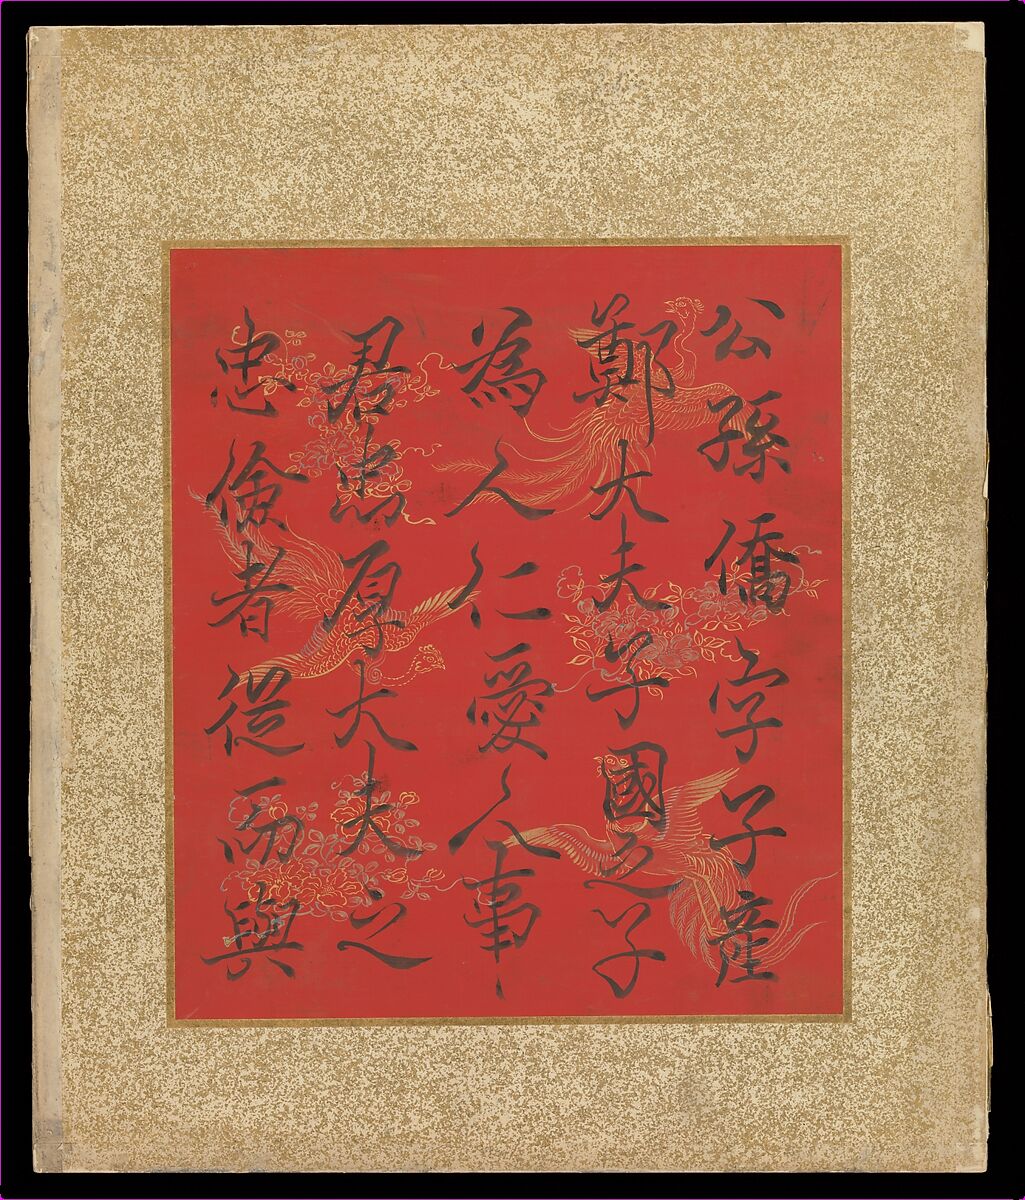 公孫僑字子產
鄭大夫子國之子
為人仁愛人事
君忠厚大夫之
忠儉者從而與